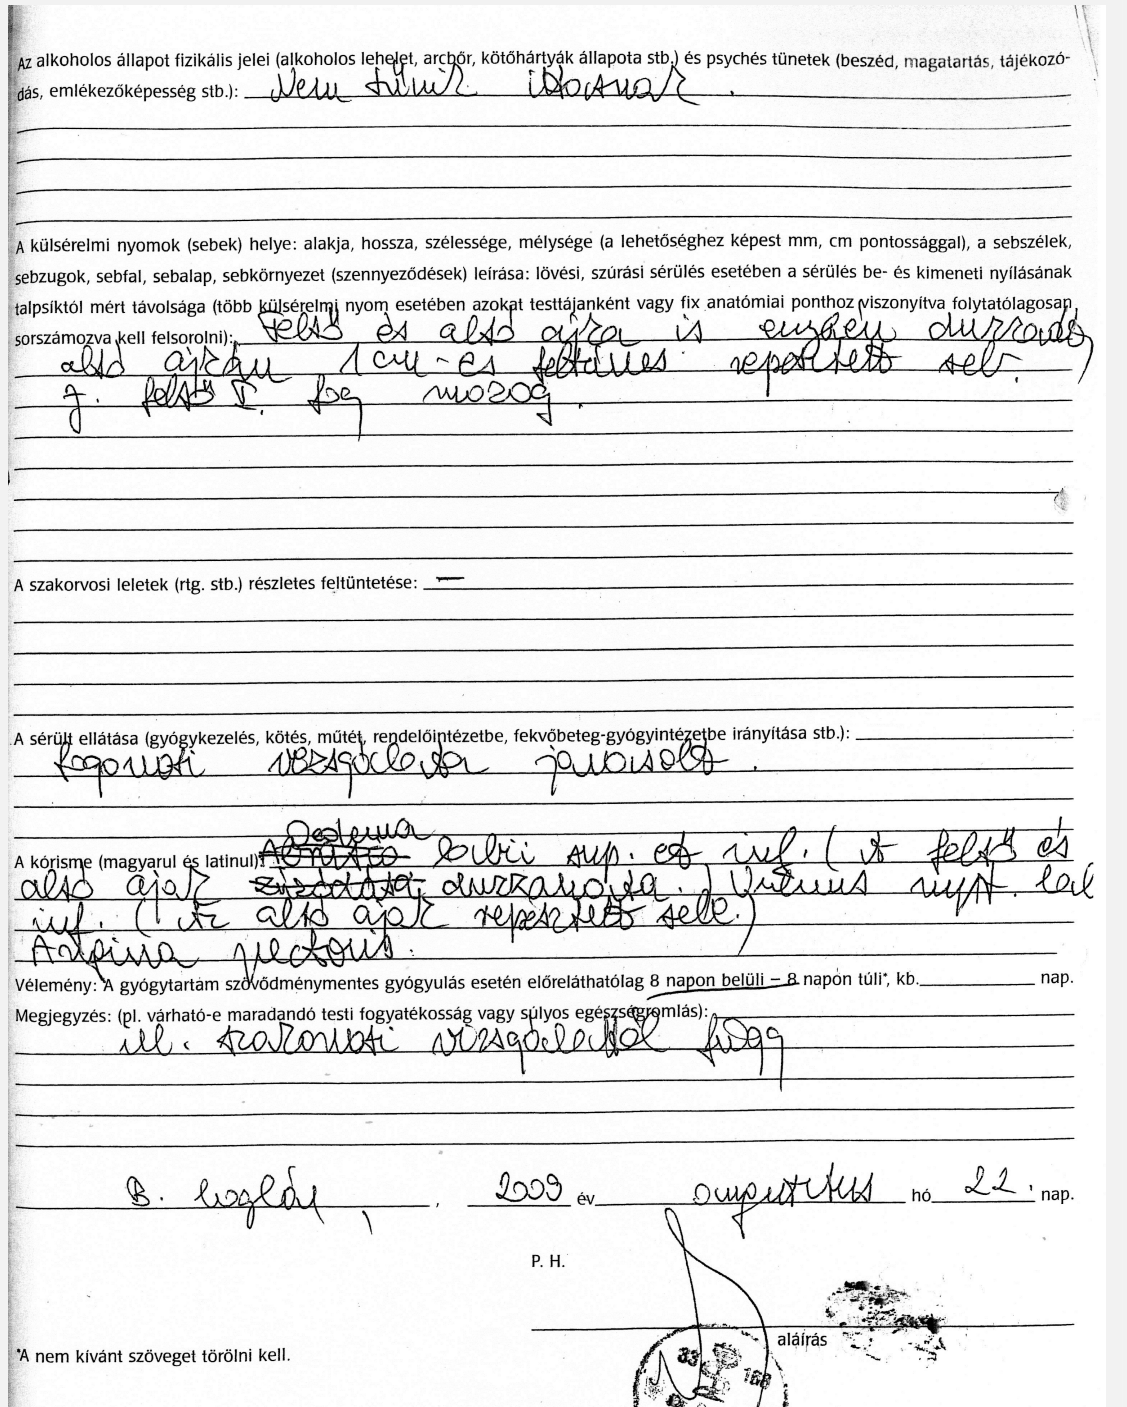 Az alkoholos állapot fizikális jelei (alkoholos lehelet, arcbőr, kötőhártyák állapota stb.) és psychés tünetek (beszéd, magatartás, tájékozó-
dás, emlékezőképesség stb.): Nem tűnik ittasnak.
A külsérelmi nyomok (sebek) helye: alakja, hossza, szélessége, mélysége (a lehetőséghez képest mm, cm pontossággal), a sebszélek,
sebzugok, sebfal, sebalap, sebkörnyezet (szennyeződések) leírása: lövési, szúrási sérülés esetében a sérülés be- és kimeneti nyílásának
talpsíktól mért távolsága (több külsérelmi nyom esetében azokat testtájanként vagy fix anatómiai ponthoz viszonyítva folytatólagosan
sorszámozva kell felsorolni): Felső és alsó ajka is enyhén duzzadt,
alsó ajkán 1 cm-es felszínes repesztett seb.
J. felső I. fog mozog.
A szakorvosi leletek (rtg. stb.) részletes feltüntetése: —
A sérült ellátása (gyógykezelés, kötés, műtét, rendelőintézetbe, fekvőbeteg-gyógyintézetbe irányítása stb.):
fogorvosi vizsgálata javasolt.
Oedema
A kórisme (magyarul és latinul): labii sup. et inf. (A felső és
alsó ajak zúzódása, duzzanata.) Vulnus rupt. lab
inf. (Az alsó ajak repesztett sebe.)
Angina pectoris.
Vélemény: A gyógytartam szövődménymentes gyógyulás esetén előreláthatólag 8 napon belüli – 8 napon túli*, kb. nap.
Megjegyzés: (pl. várható-e maradandó testi fogyatékosság vagy súlyos egészségromlás):
ill. szakorvosi vizsgálattól függ
B. boglár, 2009 év augusztus hó 22. nap.
P. H.
aláírás
*A nem kívánt szöveget törölni kell.
33
168